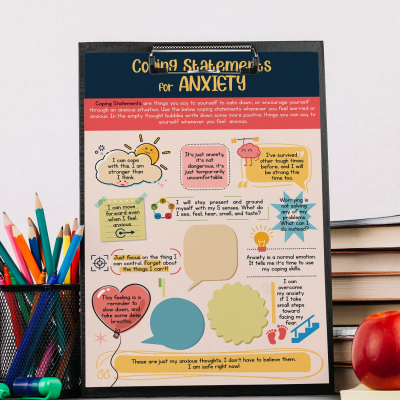 Coping Statements
for ANXIETY
Coping Statements are things you say to yourself to calm down, or encourage yourself
through an anxious situation. Use the below coping statements whenever you feel worried or
anxious. In the empty thought bubbles write down some more positive things you can say to
yourself whenever you feel anxious.
I can cope
with this. I am
stronger than
I think.
It's just anxiety,
it's not
dangerous, it's
just temporarily
uncomfortable.
I've survived
other tough times
before, and I will
be strong this
time too.
I can move
forward even
when I feel
anxious.
I will stay present and ground
myself with my 5 senses. What do
I see, feel, hear, smell, and taste?
Worrying is
not solving
any of my
problems.
What can I
do instead?
Just focus on the thing I
can control. Forget about
the things I can't!
Anxiety is a normal emotion.
It tells me it's time to use
my coping skills.
This feeling is a
reminder to
slow down, and
take some deep
breaths.
I can
overcome
my anxiety
if I take
small steps
toward
facing my
fear.
These are just my anxious thoughts. I don't have to believe them.
I am safe right now!